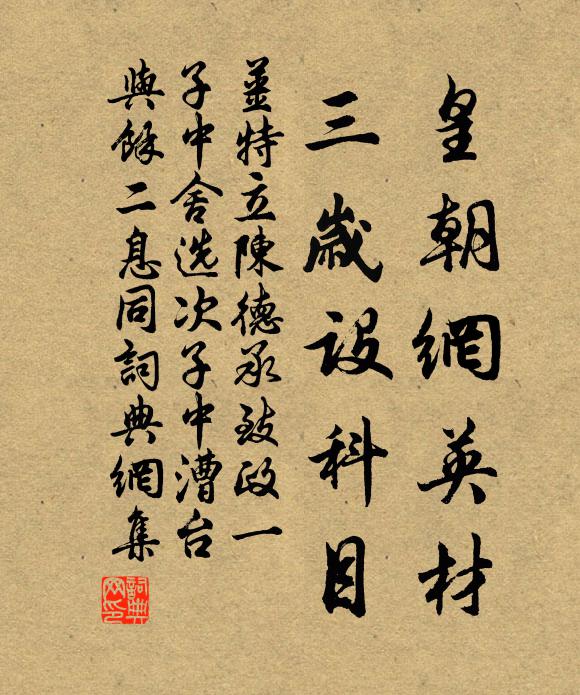 皇朝網英材
三歲設科目
姜特立陳德承致政一
子中舍选次子中漕台
與餘二息同詞典網集
詞典
网印